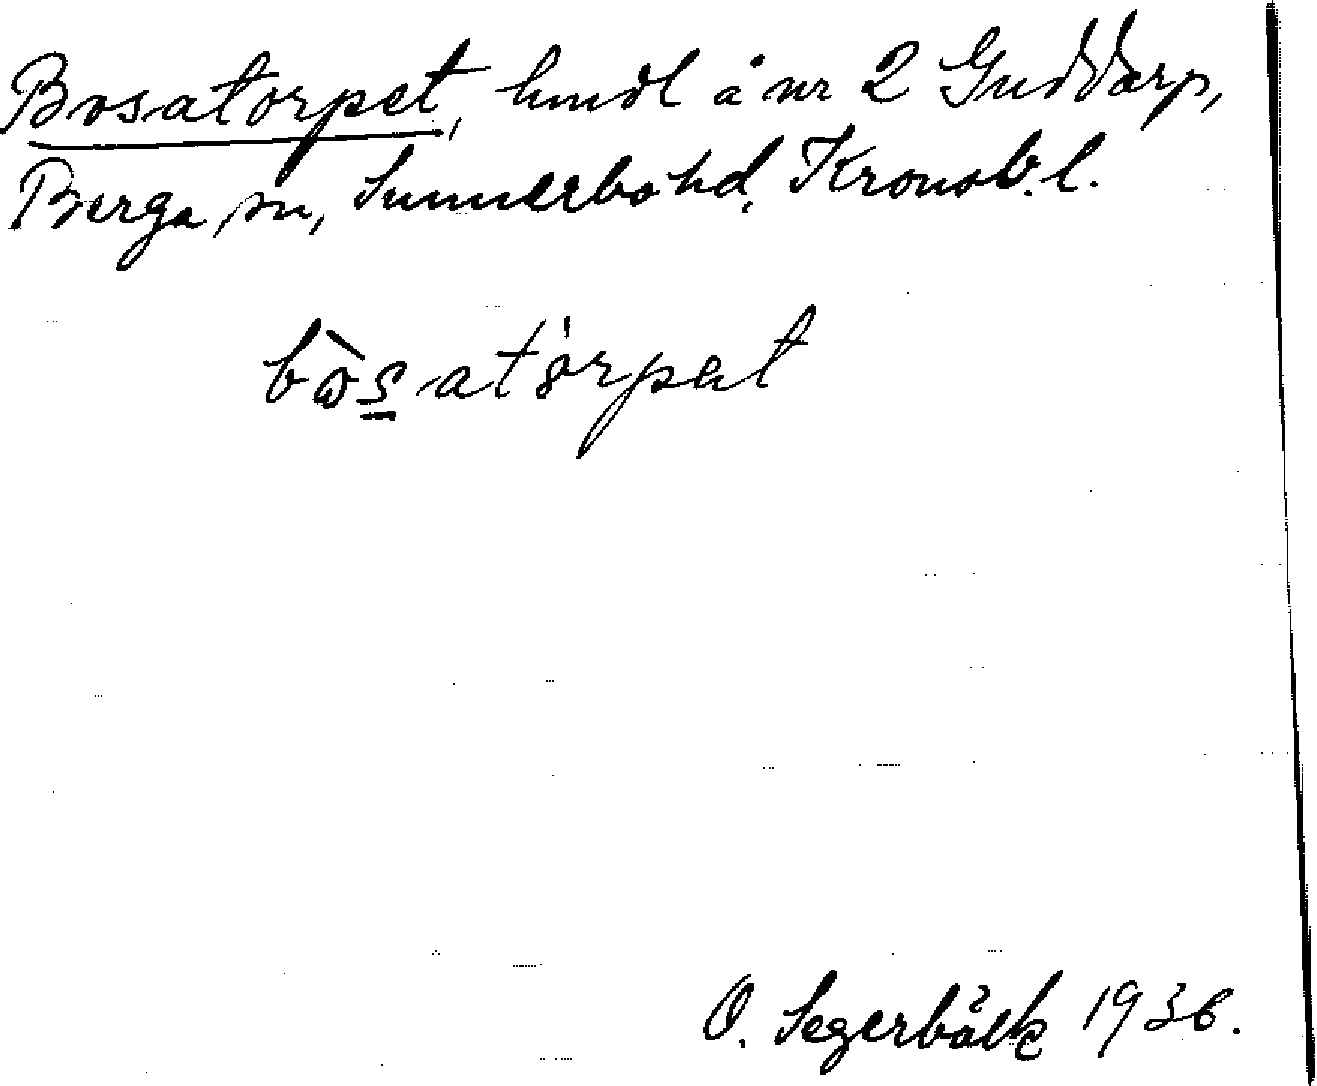 Bosatorpet, hmdl å nr 2 Guddarp,
Berga sn, Sunnerbo hd, Kronob. l.
bo̊s̱atòrpat
O. Segerbäck 1936.